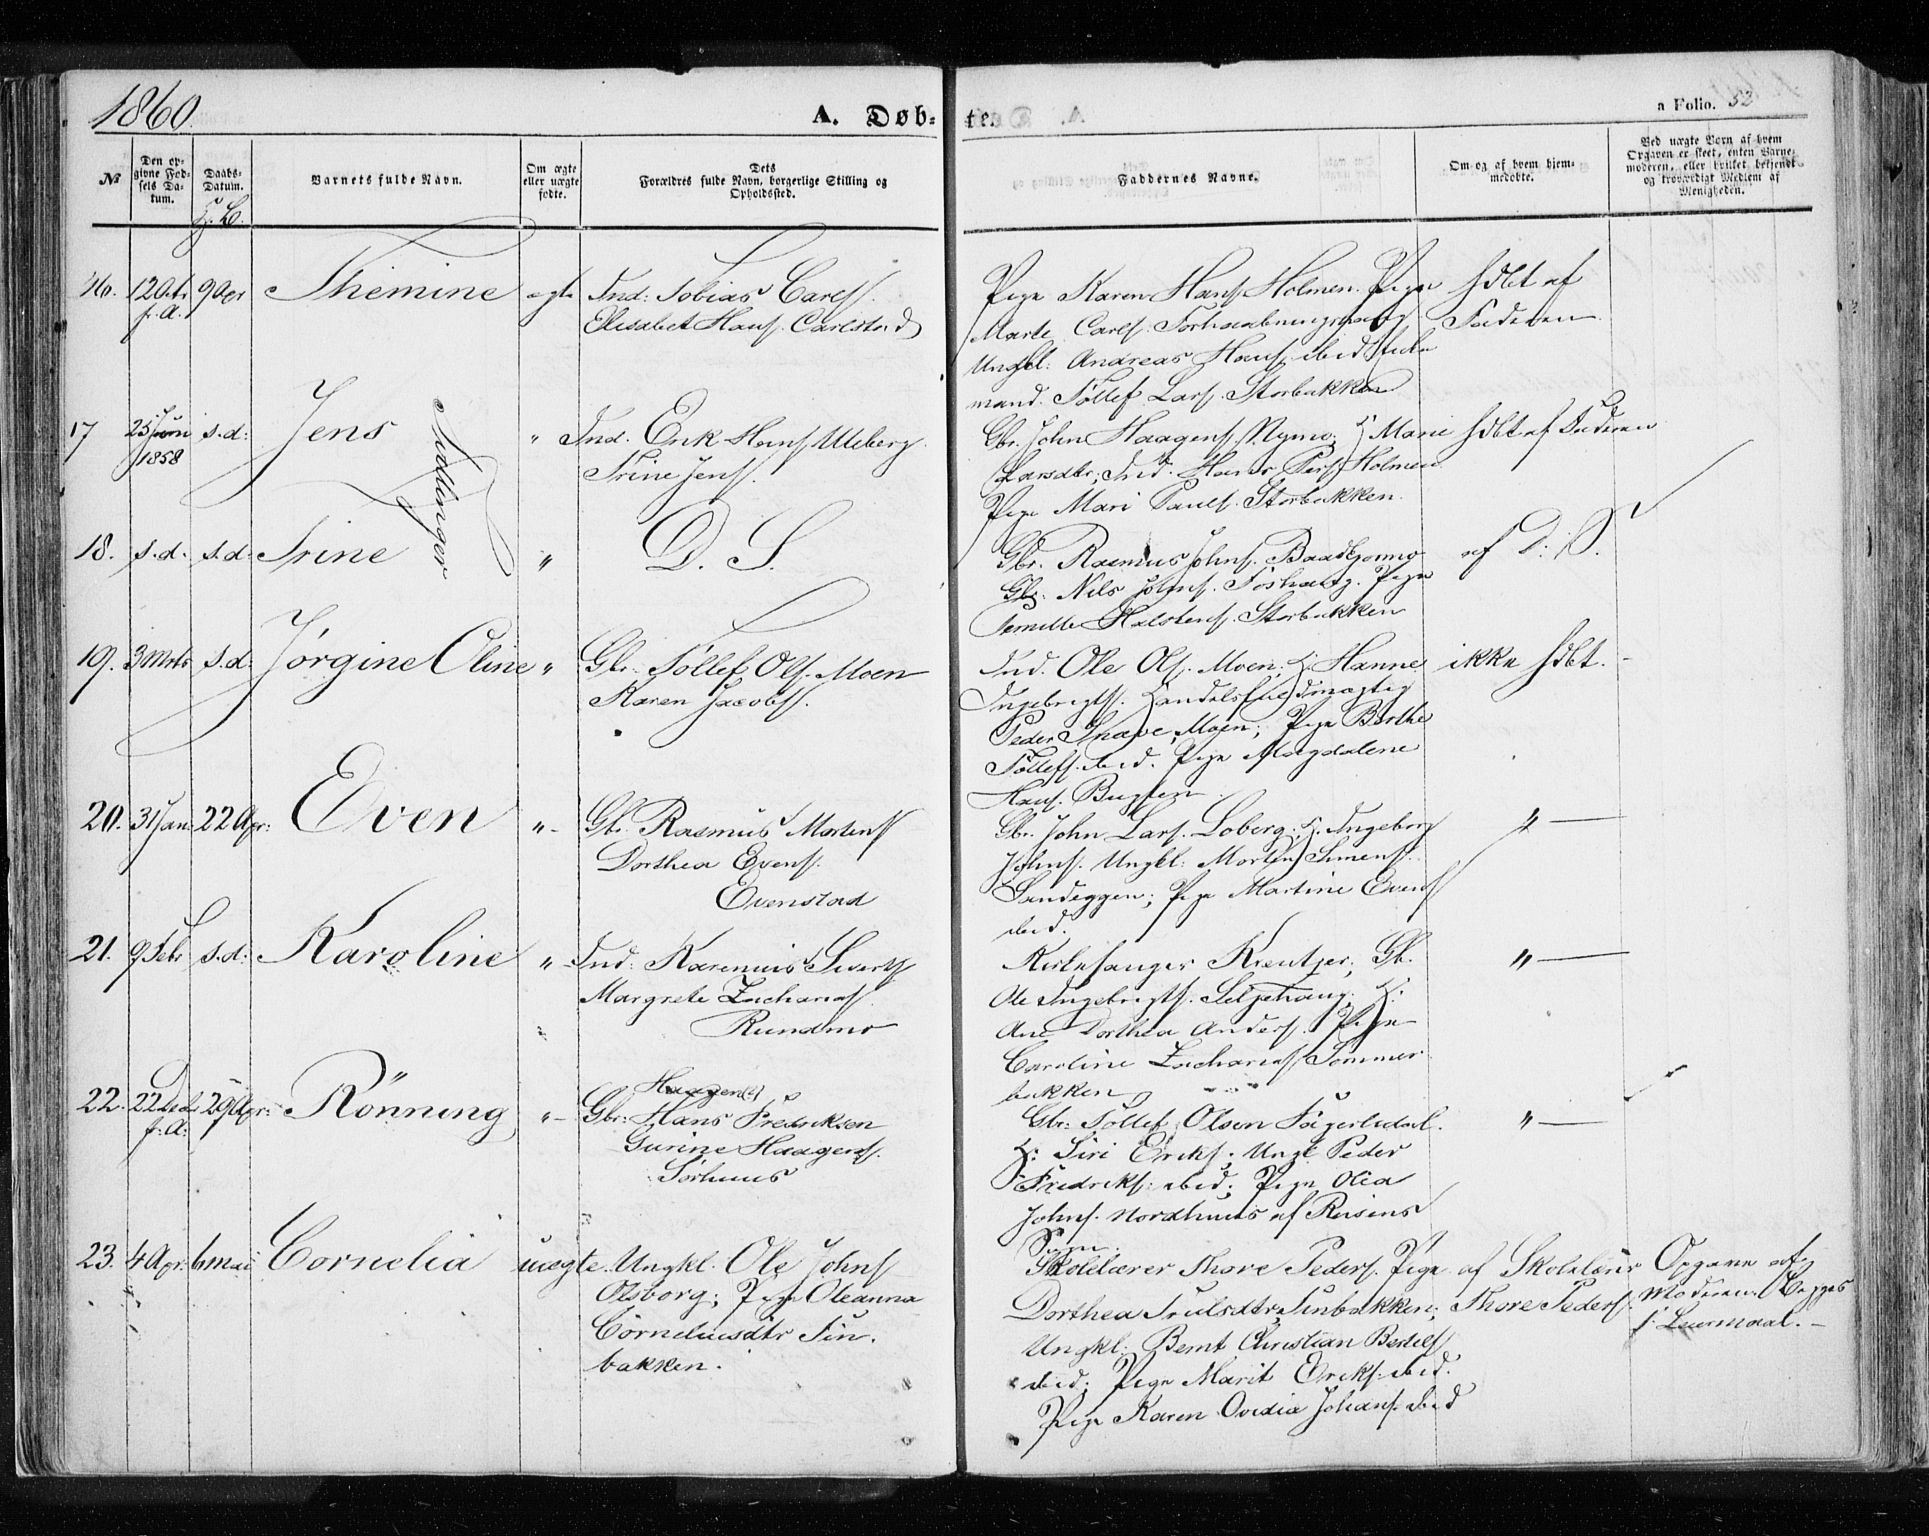 1860.
A. Døb-
te.
a Folio. 52
№
Den op-
givne Fød-
sels Da-
tum.
Daabs-
Datum.
Barnets fulde Navn.
Om ægte
eller uægte
fødte.
Dets
Forældres fulde Navn, borgerlige Stilling og
Opholdssted.
Faddernes Navne.
Om og af hvem hjem-
medøbte.
Ved uægte Børn af hvem
Opgaven er skeet, enten Barne-
moderen, eller hvilket bekjendt
og troværdigt Medlem af
Menigheden.
16. 12 Oct. 9 Apr Themine ægte Ind: Tobias Carls.
f. A.
Elisabet Hans. Carlstad
Pige Karen Hans. Holmen. Pige
Marte Carls.
Ungkl: Andreas Hans. ibid
mand. Tollef Lars. Storbakken
hdbt af
Faderen
17 25 Juni s.d: Jens " Ind. Erik Hans. Uleberg.
1858
Trine Jens.
Tvillinger
Gbr. John Haagens. Nymo; H. Marie
Larsdtr; Ind. Hans Pers. Holmen
Pige Mari Pauls. Storbakken.
hdbt af Faderen
18. s.d. s.d: Trine " D. S.
Gbr. Rasmus Johns.
Gbr. Nils Johns. Foshaug. Pige
Pernille Halstens. Storbakken
af D: S.
19. 3 Mrts s.d: Jørgine Oline " Gbr. Tollef Ols. Moen
Karen Jacobs.
Ind. Ole Ols. Moen; H. Hanne
Ingebrigts. Handelsfuldmægtig
Peder Moen; Pige Berthe
Tollefs. ibid. Pige Magdalene
Hans.
ikke hdbt.
20. 31 Jan: 22 Apr: Even " Gbr. Rasmus Mortens
Dorthea Evens.
Evenstad
Gbr. John Lars. Loberg; H. Ingeborg
Johns. Ungkl: Morten Simens.
Sandeggen; Pige Martine Evens
ibid.
" —
21. 9 Febr s.d: Karoline " Ind: Karenius Siverts
Margrete Zacharias.
Rundmo
Kirkesanger Kreutzer; Gb.
Ole Ingebrigts. Seljehaug; H:
Ane Dorthea Anders. Pige
Caroline Zacharias. Tømmer
bakken
" —
22. 22 Dec 29 Apr: Rönning " Gbr: Hans Fredriksen
f. A:
Haagen(?)
Gurine Haagens.
Sørhuus
Gbr: Tollef Olsen Fagerlidal.
H: Siri Eriks. Ungk Peder
Fredriks: ibid; Pige Olia
Johns. Nordhuus af Reisens
Sogn.
" —
23. 4 Apr: 6 Mai Cornelia uægte. Ungkl. Ole Johns
Olsborg; Pige Oleanna
Corneliusdtr Fin.
bakken.
Skolelærer Thore Peders. Pige
Dorthea Trulsdtr Finbakken;
Ungkl: Bernt Christian Bertels
ibid; Pige Marit Eriks. ibid.
Pige Karen Ovidia Johans. ibid
af Skolelærer
Thore Peders.
Opgave af
Moderen. Begges
f. Leiermaal.